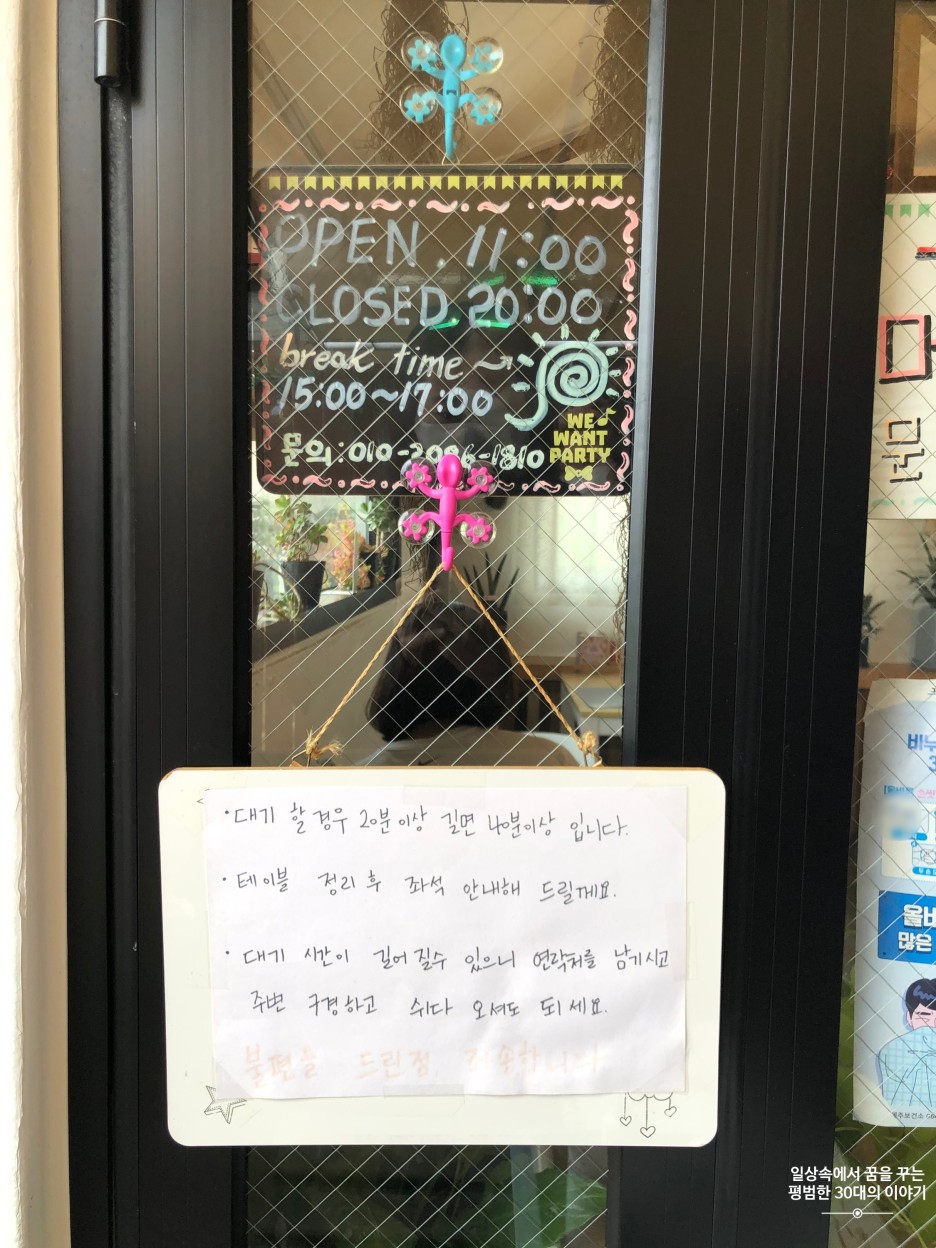 OPEN . 11:00
CLOSED. 20:00
break time
15:00~17:00
문의:010-2086-1810
WE
WANT
PARTY
• 대기 할경우 20분이상 길면 40분이상 입니다.
• 테이블 정리 후 좌석 안내해 드릴께요.
• 대기 시간이 길어 질수 있으니 연락처를 남기시고
주변 구경하고 쉬다 오셔도 되세요.
불편을 드린점 죄송합니다
올바
많은
일상속에서 꿈을 꾸는
평범한 30대의 이야기